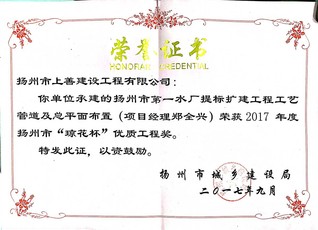 荣誉证书
HONORARY CREDENTIAL
扬州市上善建设工程有限公司：
你单位承建的扬州市第一水厂提标扩建工程工艺
管道及总平面布置（项目经理郑全兴）荣获2017年度
扬州市“琼花杯”优质工程奖。
特发此证，以资鼓励。
扬州市城乡建设局
二〇一七年九月